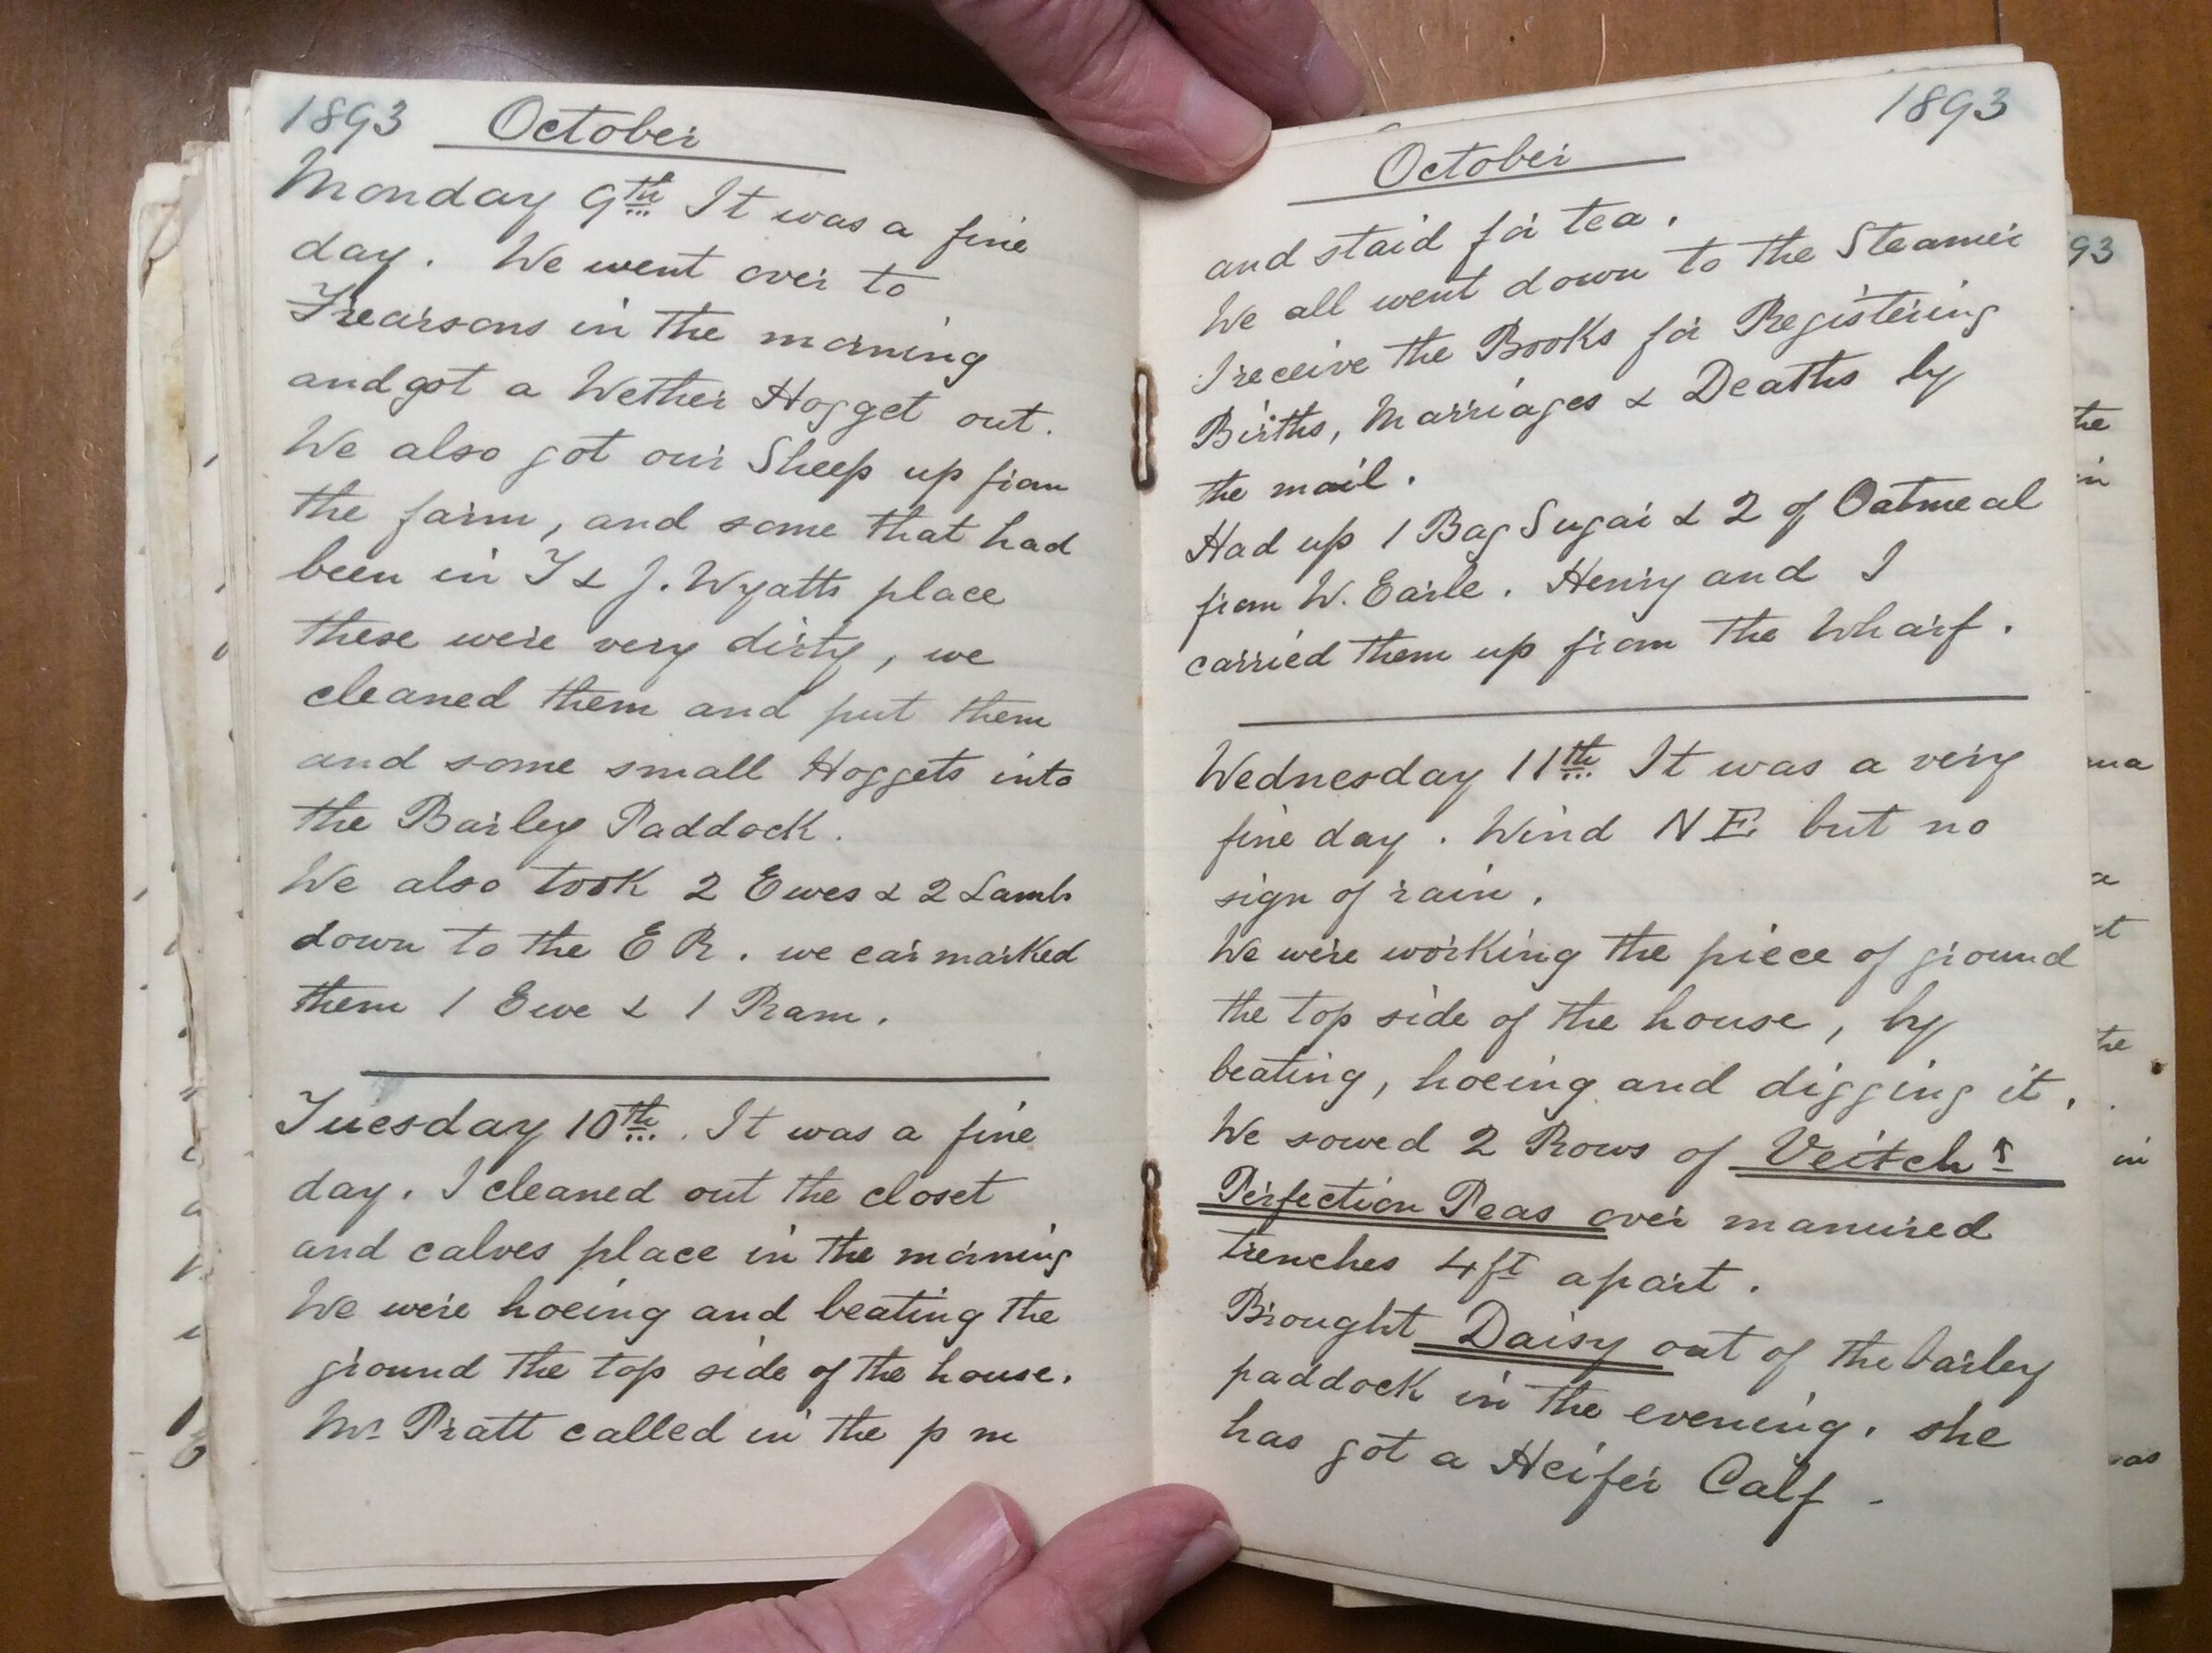 1893 October
Monday 9th It was a fine
day. We went over to
Frearsons in the morning
and got a Wether Hogget out.
We also got our Sheep up from
the farm, and some that had
been in T & J. Wyatts place
these were very dirty, we
cleaned them and put them
and some small Hoggets into
the Barley Paddock.
We also took 2 Ewes & 2 Lambs
down to the E R. we earmarked
them 1 Ewe & 1 Ram.
Tuesday 10th. It was a fine
day. I cleaned out the closet
and calves place in the morning
We were hoeing and beating the
ground the top side of the house.
Mr Pratt called in the p m
1893
October
and staid for tea.
We all went down to the Steamer
I receive the Books for Registering
Births, Marriages & Deaths by
the mail.
Had up 1 Bag Sugar & 2 of Oatmeal
from W. Earle. Henry and I
carried them up from the Wharf.
Wednesday 11th It was a very
fine day. Wind NE but no
sign of rain.
We were working the piece of ground
the top side of the house, by
beating, hoeing and digging it.
We sowed 2 Rows of Veitch's
Perfection Peas over manured
trenches 4ft apart.
Brought Daisy out of the barley
paddock in the evening. she
has got a Heifer Calf.
93
the
in
a
the
in
as